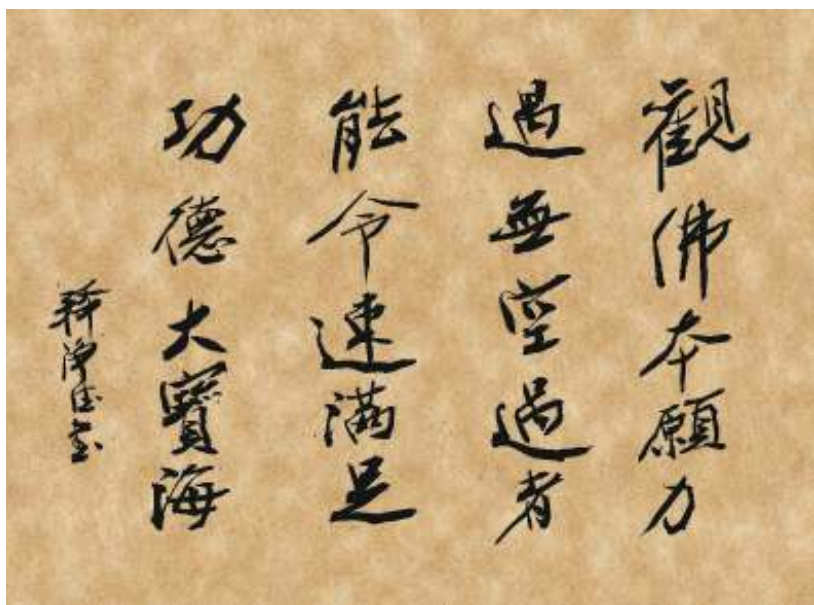 觀佛本願力
遇無空過者
能令速滿足
功德大寶海
釋淨